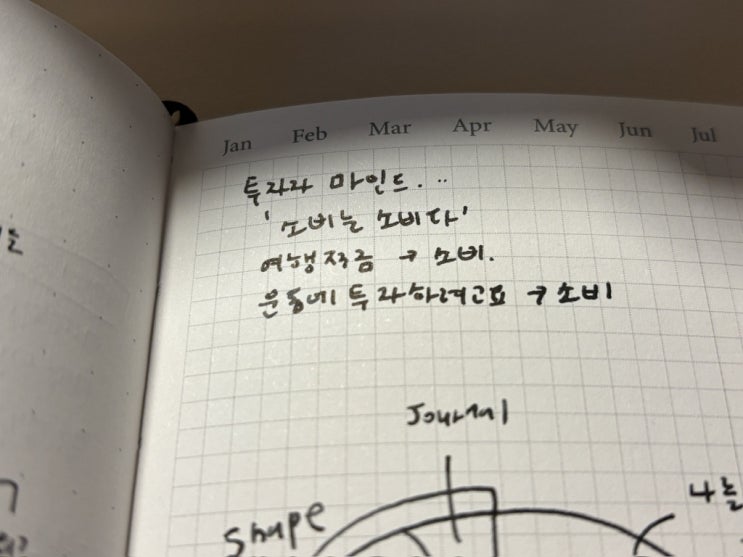 Jan Feb Mar Apr May Jun Jul
투자자 마인드...
'소비는 소비다'
여행저금 → 소비.
운동에 투자하려고요 → 소비
Journal
Shape
나는